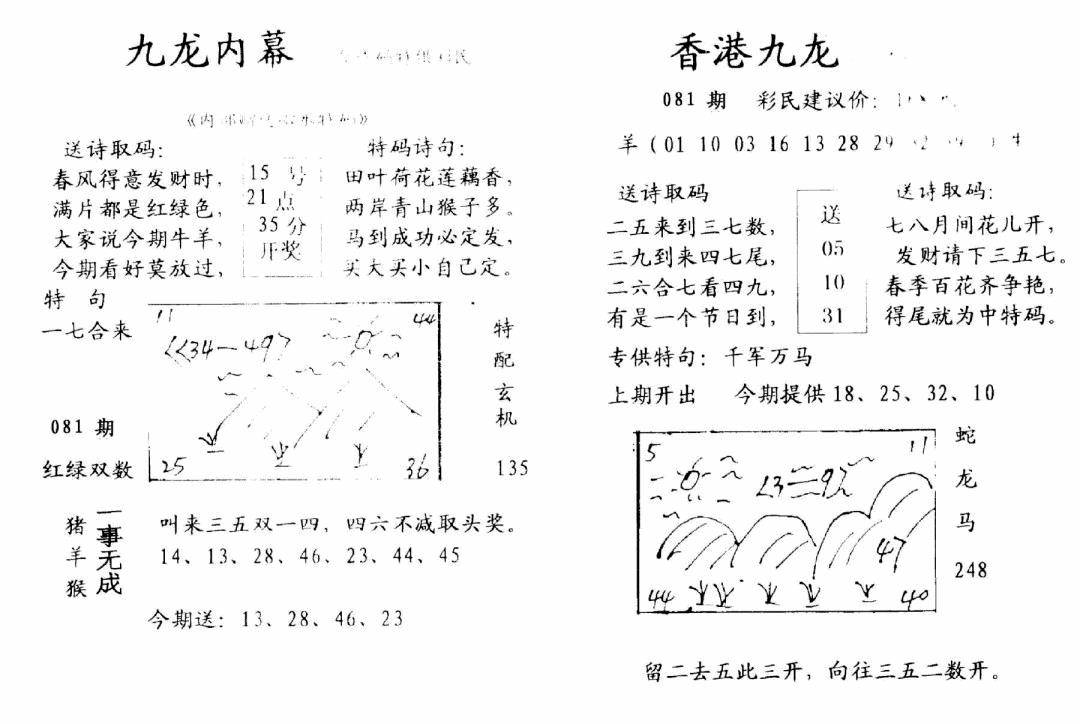 九龙内幕
送诗取码：
春风得意发财时，
满片都是红绿色，
大家说今期牛羊，
今期看好莫放过，
15 号
21 点
35 分
开奖
特码诗句：
田叶荷花莲藕香，
两岸青山猴子多。
马到成功必定发，
买大买小自己定。
特 句
一七合来
081 期
红绿双数
11
44
<<34—49>
25
36
特
配
玄
机
135
猪
羊
猴
一事无成
叫来三五双一四，四六不减取头奖。
14、13、28、46、23、44、45
今期送：13、28、46、23
香港九龙
081 期 彩民建议价：
羊（01 10 03 16 13 28 29
送诗取码
二五来到三七数，
三九到来四七尾，
二六合七看四九，
有是一个节日到，
送
05
10
31
送诗取码：
七八月间花儿开，
发财请下三五七。
春季百花齐争艳，
得尾就为中特码。
专供特句：千军万马
上期开出 今期提供 18、25、32、10
5
11
47
44
40
蛇
龙
马
248
留二去五此三开，向往三五二数开。